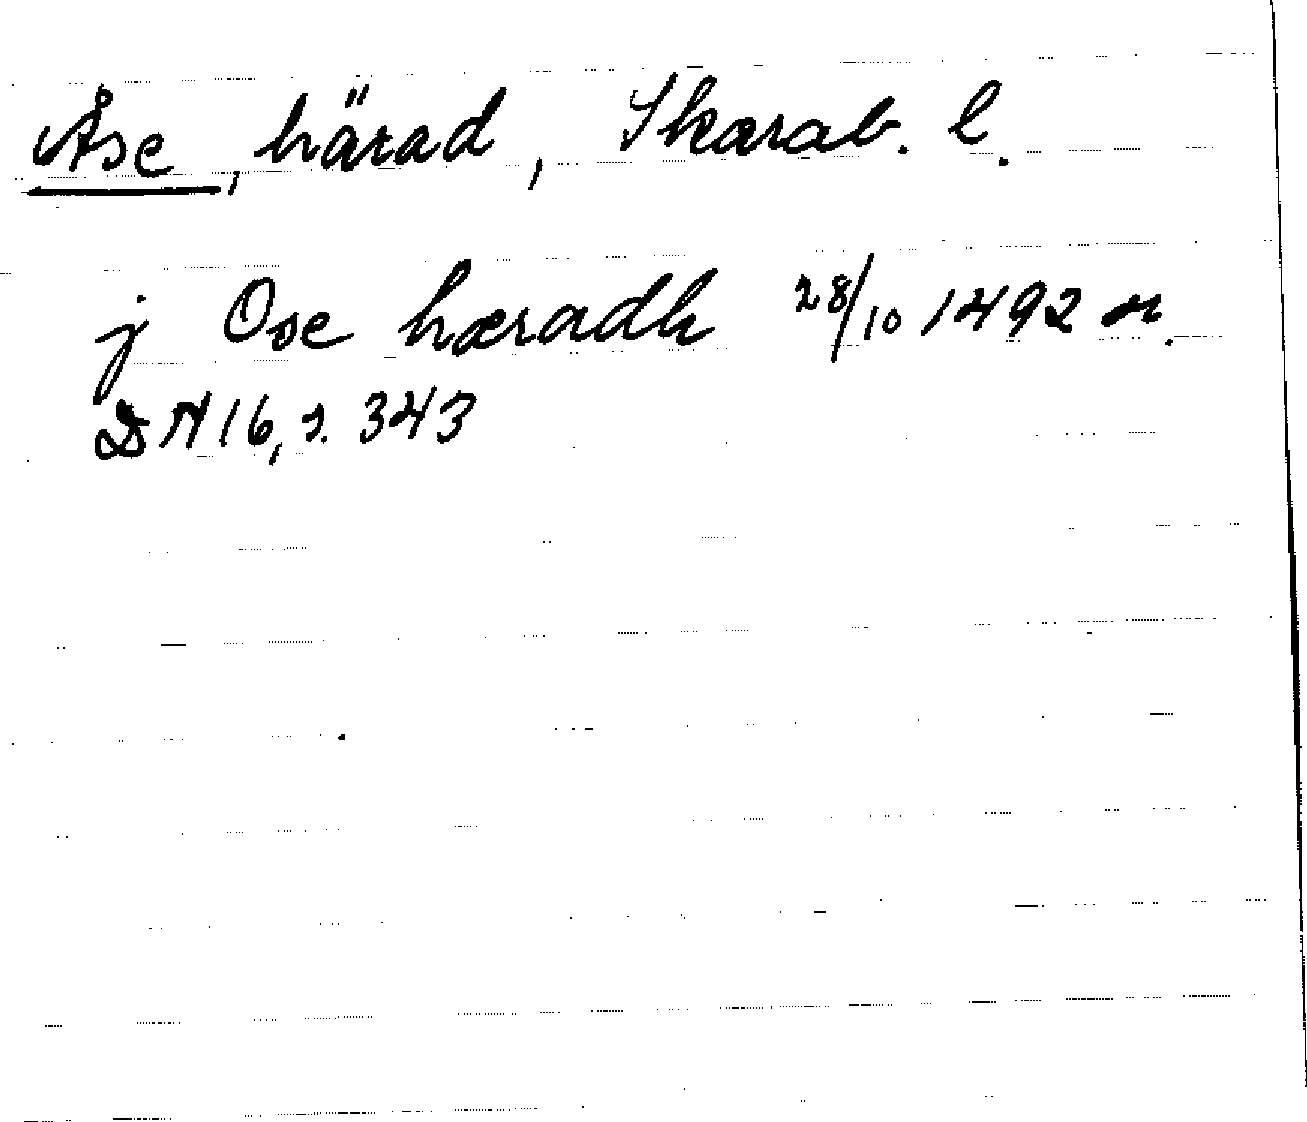 Åse, härad, Skarab. l.
j Ose hæradh 28/10 1492 n.
DN 16, s. 343